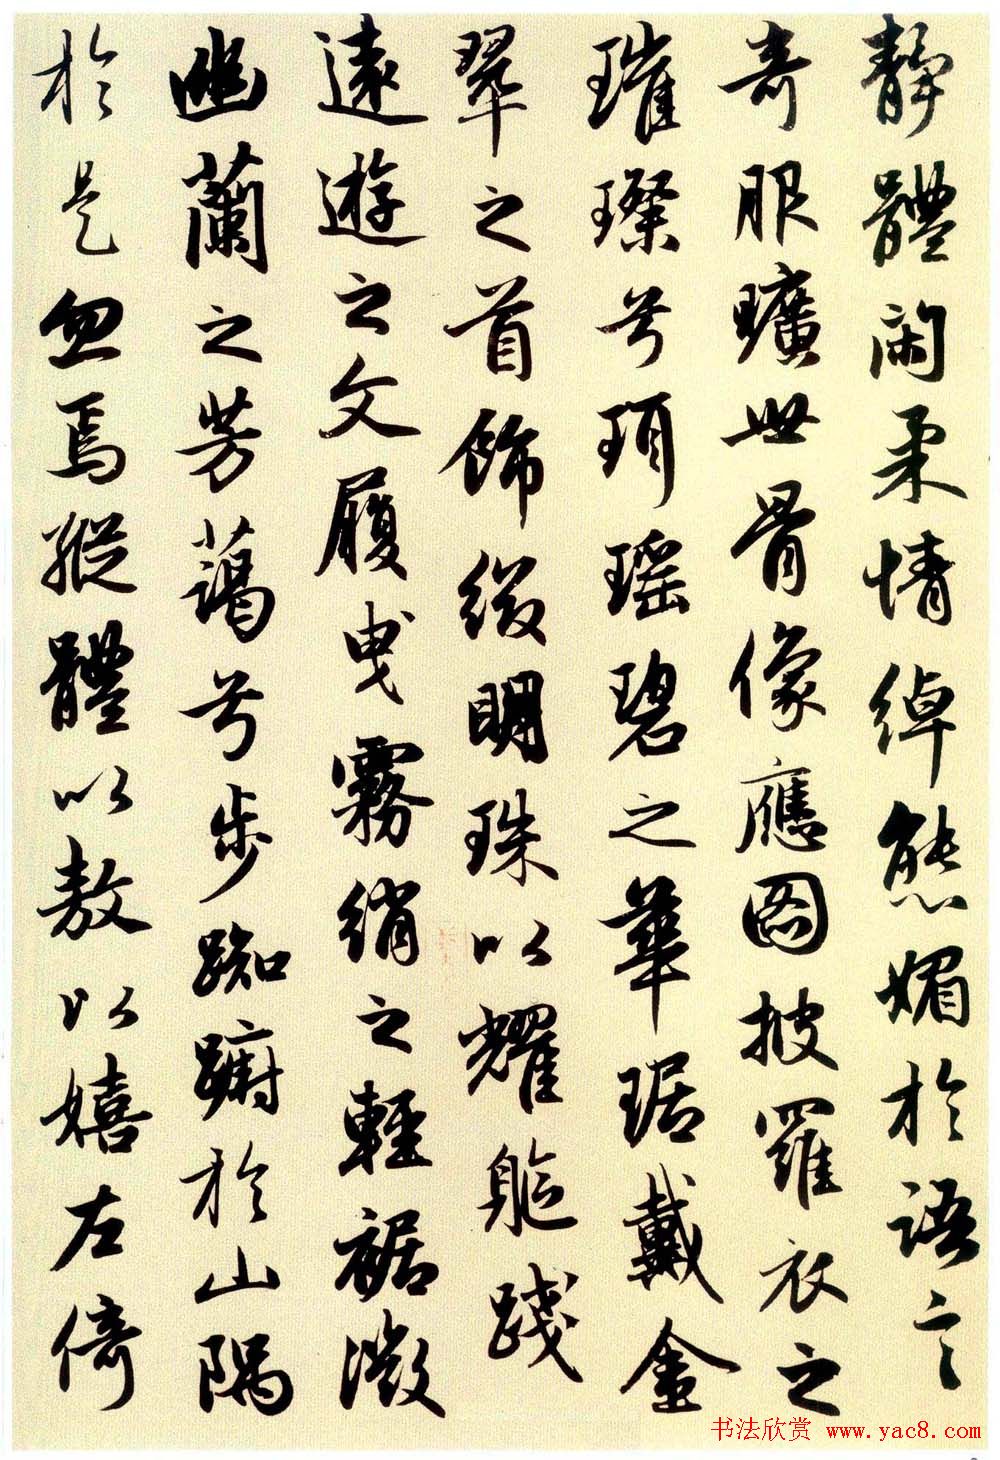 靜體閑柔情綽態媚於語言
奇服曠世骨像應圖披羅衣之
璀璨兮珥瑤碧之華琚戴金
翠之首飾綴明珠以耀軀踐
遠遊之文履曳霧綃之輕裾微
幽蘭之芳藹兮步踟躕於山隅
於是忽焉縱體以敖以嬉左倚
书法欣赏 www.yac8.com